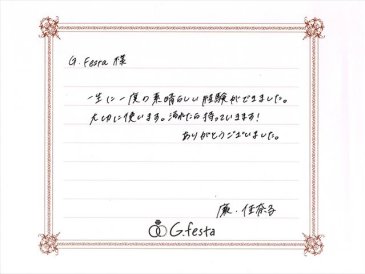 G.festa 様
一生に一度の素晴らしい経験ができました。
大切に使います。汚れたら持っていきます!
ありがとうございました。
廉・佳奈子
G.festa